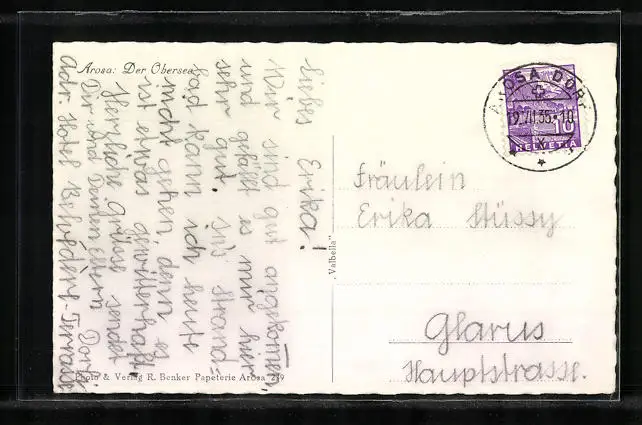 Arosa: Der Obersee
Liebes Erika!
Wir sind gut angekommen
und gefällt es mir hier
sehr gut. Ins Strand=
bad kann ich heute
nicht gehen, denn es
ist etwas gewitterhaft.
Herzliche Grüsse sendet
Dir und Deinen Eltern Dorli
Adr. Hotel Belvédère-Terrasse
Photo & Verlag R. Benker Papeterie Arosa 249
„Valbella"
AROSA DORF
HELVETIA
10
Fräulein
Erika Stüssy
Glarus
Hauptstrasse.